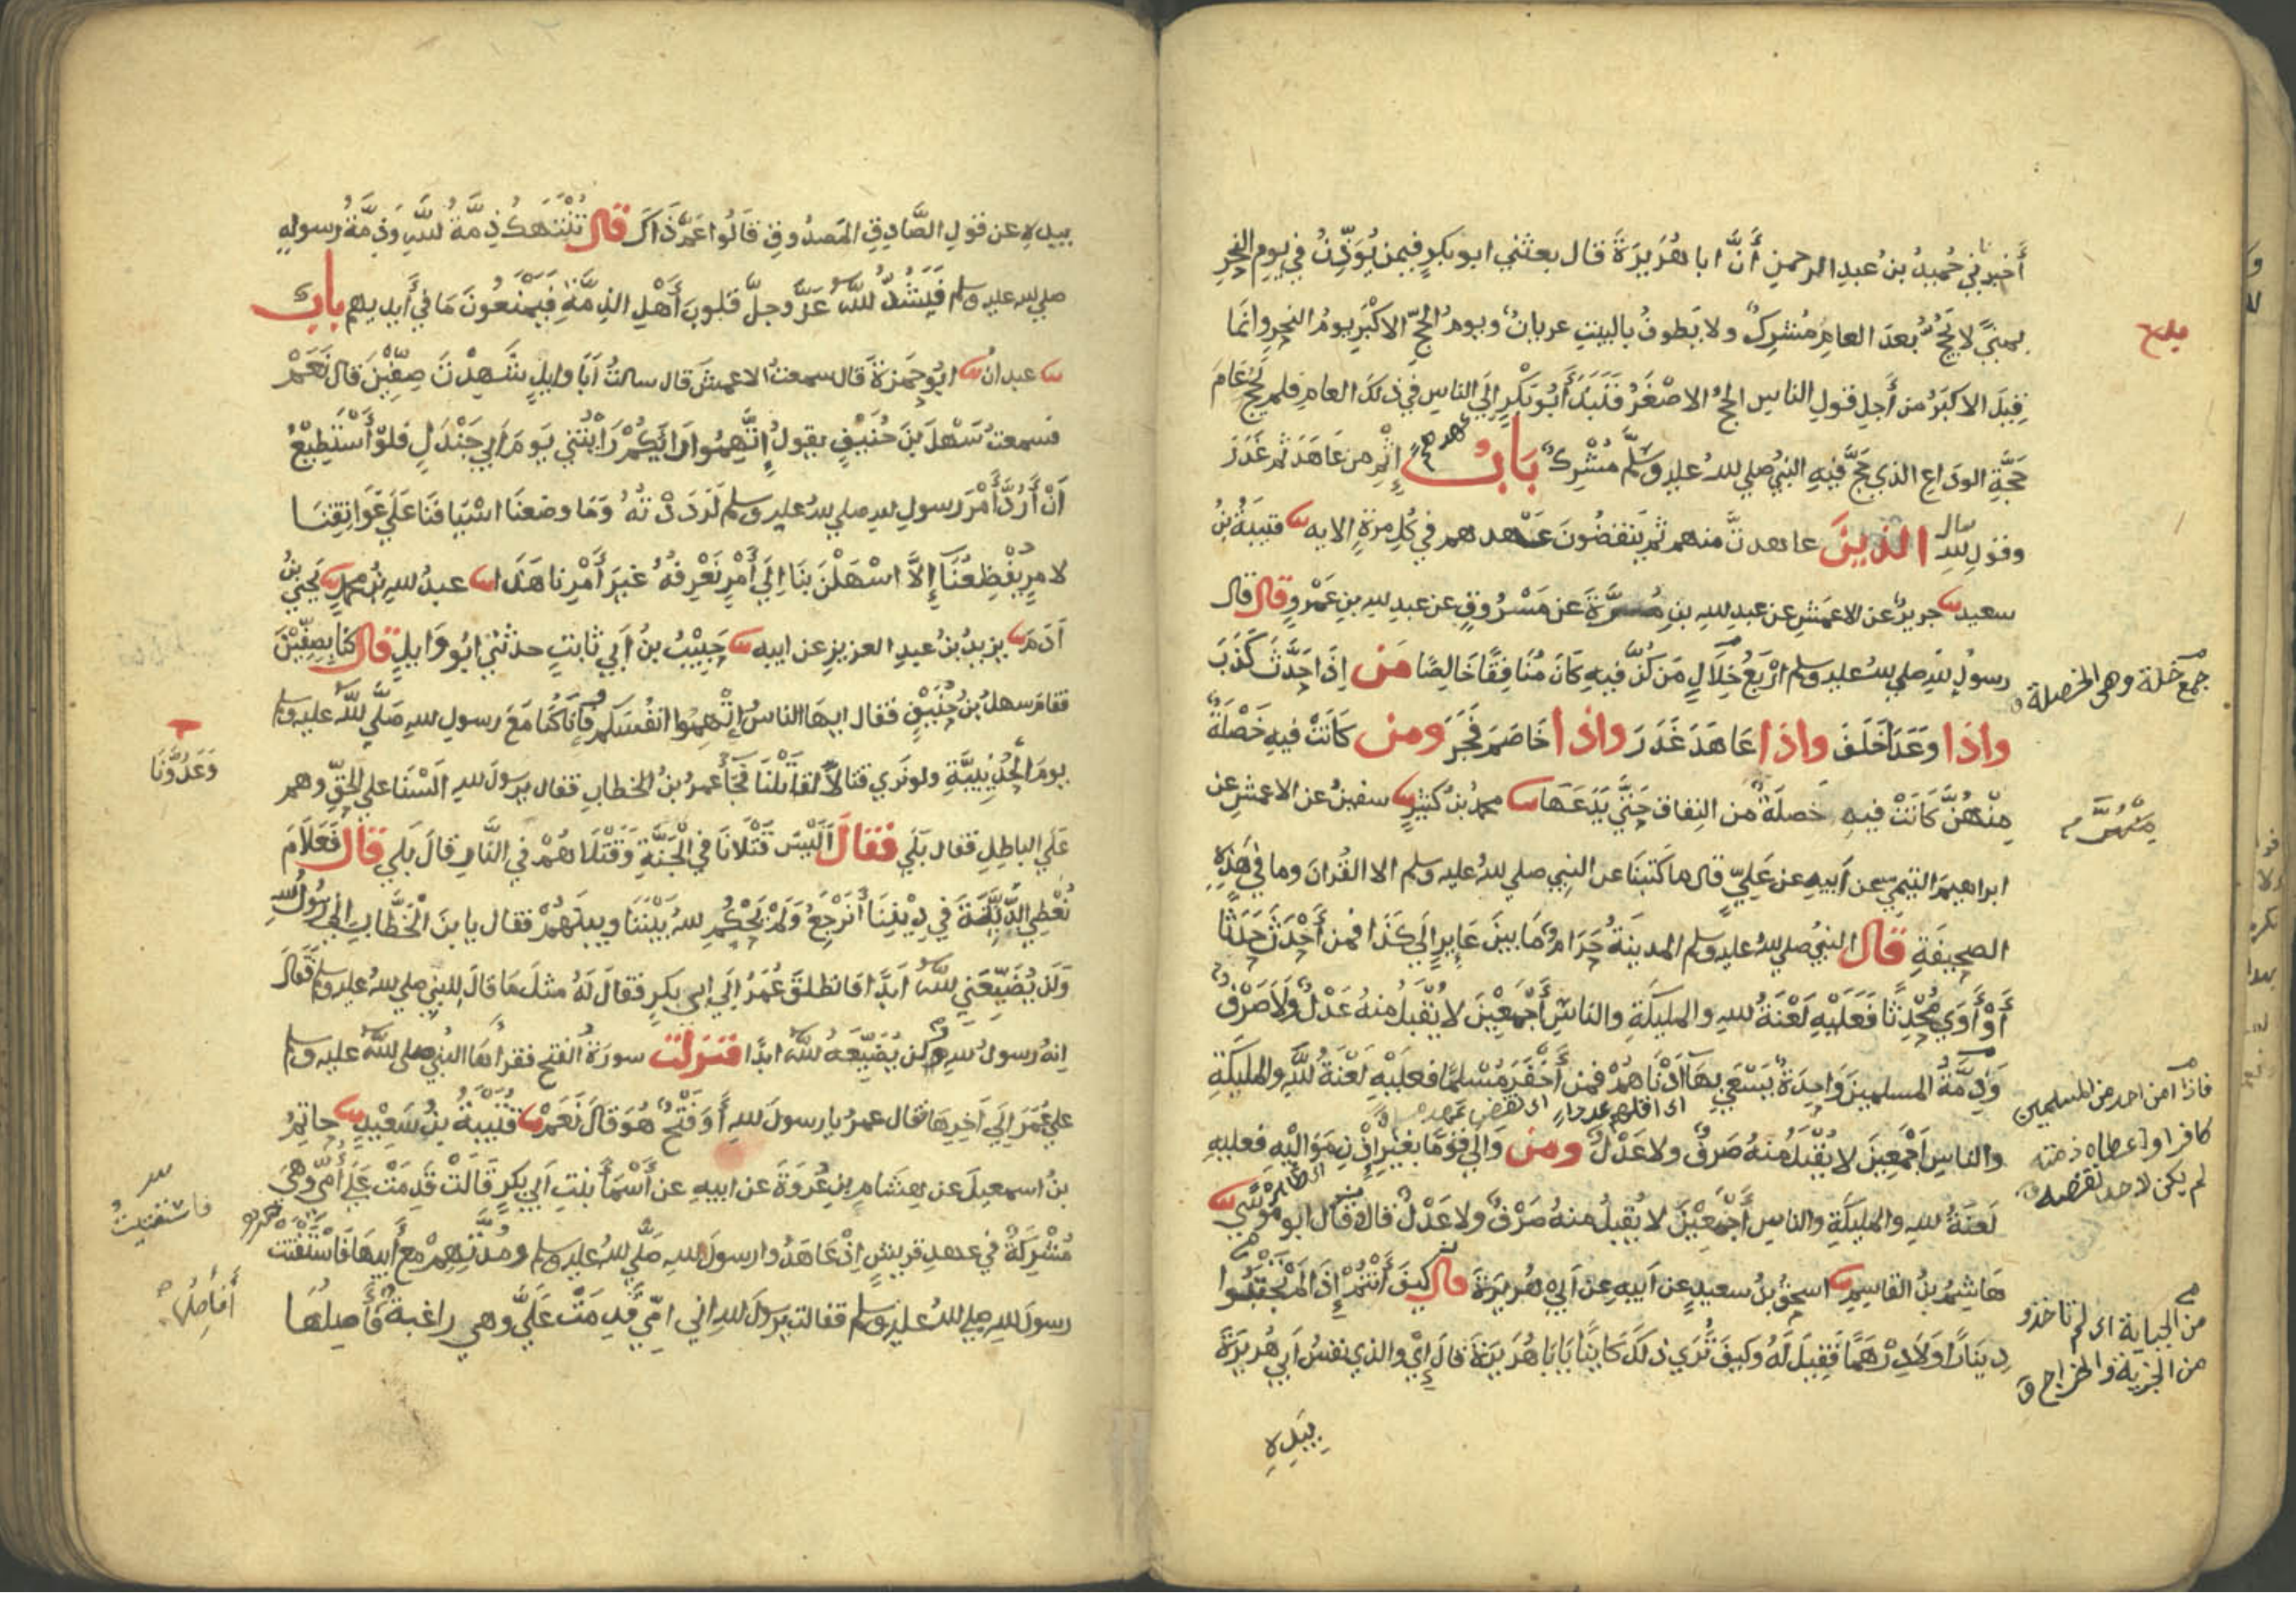 أخبرني حُميدُ بنُ عبدِ الرحمنِ أَنَّ ابا هُرَيرَةَ قال بعثني ابو بكرٍ فيمن يُوَذِّنُ في يومِ النحرِ
بمنيً لا يَحُجُّ بعدَ العامِ مُشرِكٌ ولا يَطوفُ بالبيتِ عريانٌ ويومُ الحجِّ الاكبَرِ يومُ النحرِ وانَما
قِيلَ الاكبَرُ من أَجلِ قولِ الناسِ الحجُ الاصْغَرُ فَنَبَذَ أَبُو بَكْرٍ إلَى الناسِ في ذلكَ العامِ فلم يَحُجَّ عَامَ
حَجَّةِ الوداعِ الذي حَجَّ فيهِ النبيُ صلي للهُ عليهِ وسَلَّم مُشْرِكٌ بَابُ إثْمِ من عَاهَدَ ثم غَدَرَ
وقولِ للهِ الذينَ عاهدتَّ منهم ثم يَنقضُونَ عَهْدهم في كُلِ مرَةٍ الايه قتيبَةُ بنُ
سعيد جريرٌ عن الاعمَشِ عن عبدِ للهِ بنِ مُرَّةَ عن مَسْرُوقٍ عن عبدِ للهِ بنِ عَمْرٍو قال قال
رسولُ للهِ صلي للهُ عليه وسلم ارْبَعُ خِلَالٍ مَن كُنَّ فيهِ كَانَ مُنَافِقًا خَالِصًا مَن إذَا حَدَّثَ كَذَبَ
جمع خلة وهى الخصلة
واذَا وَعَدَ أَخلَفَ واذَا عَاهَدَ غَدَرَ واذا خَاصَمَ فَجَرَ ومن كَانَتْ فيهِ خَصْلَةٌ
مِنْهُنَّ كَانَتْ فيهِ خَصلَةٌ من النِفاق حَتَّي يَدَعَهَا محمدُ بنُ كَثيرٍ سفينُ عن الاعمشِ عن
ابراهيمَ التيميّ عن أبيهِ عن عَليٍّ قال ما كَتبنَا عن النبِي صلي للهُ عليه وسلم الا القُرانَ وما في هَذِهِ
الصحِيفَةِ قَالَ النبيُ صلي للهُ عليهِ وسلم المدينَةُ حَرَامٌ مَا بينَ عَايرٍ إلَي كَذَا فمن أَحْدَثَ حَدَثًا
أَوْ أَوَي مُحْدِثًا فَعَلَيْهِ لَعْنَةُ للهِ والمليكَةِ والناسِ أَجْمَعِيْنَ لا يُقْبَلُ منهُ عَدْلٌ وَلاَ صَرْفٌ
وَذِمَّةُ المسلمينَ وَاحِدَةٌ يَسْعَي بهَا أَدْنَاهُمْ فمن أَخْفَرَ مُسْلِمًا فعلَيْهِ لَعْنَةُ للَّهِ والمليكَةِ
فاذا آمن احد من المسلمين
كافرا واعطاه ذمته
لم يكن لاحد نقضه
والناسِ أَجْمَعِينَ لا يُقْبَلُ منهُ صَرفٌ ولا عَدْلٌ ومن وَالي قَومًا بغيرِ إذْنِ مَوَاليْهِ فعليهِ
لَعنَةُ للهِ والمليكَةِ والناسِ أَجْمَعِيْنَ لا يُقبلُ منهُ صَرْفٌ ولا عَدْلٌ قال وقال ابو مُوسَي
هَاشِمُ بنُ القاسِمِ اسحقُ بنُ سعيدٍ عن أبيهِ عن أبي هُريرَةَ قال كيفَ أَنتُمْ إذَا لَمْ تَجْتَبُوا
من الجباية اى لم تاخذو
من الجزية والخراج
دِينَارًا وَلاَ دِرْهَمًا فَقِيلَ لَهُ وَكيفَ تُرَي ذلكَ كَاينًا يَا بَا هُرَيرَةَ قالَ إيْ والذي نفسُ أبي هُريرَةَ
بيَدِهِ
بيدهِ عن قولِ الصَّادِقِ المَصدُوقِ قَالُوا عَمَّ ذَاكَ قال تُنْتَهَكُ ذِمَّةُ للَّهِ وَذِمَّةُ رسولِهِ
صلي لله عليه وسلم فَيَشُدُّ للَّهُ عَزَّ وجلَّ قلوبَ أَهْلِ الذِمَّةِ فيَمْنَعُونَ مَا في أَيديهِم بابُ
عبدانُ ابُو حَمزةَ قال سمعتُ الاعمشَ قال سالتُ أبَا وايلٍ شَهِدْتَ صِفّيْنَ قال نَعَمْ
فسمعتُ سَهْلَ بنَ حُنَيفٍ يقولُ إتَّهِمُوا رَايَكُمْ رَأيْتُني يَومَ أبي جَنْدَلٍ فلوْ أَسْتَطِيْعُ
أَنْ أَرُدَّ أَمْرَ رَسولِ للهِ صلي للهُ عليه وسلم لَرَدَدْتُهُ وَمَا وضعنَا اسْيَافَنَا عَلَي عَوَاتِقِنَا
لامرٍ يُفْظِعُنَا إلاَّ اسْهَلْنَ بنَا إلَي أَمْرٍ نَعْرِفُهُ غيرَ أَمْرِنا هَذَا عبدُ للهِ بنُ محمدٍ يَحيَي بنُ
آدَمَ يزيدُ بنُ عبدِ العزيزِ عن ابيه حَبِيْبُ بنُ أبي ثابتٍ حدثني ابُو وَايلٍ قال كنا بصِفّيْنَ
فقامَ سهلُ بنُ حُنَيْفٍ فقال ايها الناسُ إتَّهِمُوا انفُسَكُم فَإنَّا كُنَّا مَعَ رَسولِ للهِ صَلَّي للَّهُ عليه وسلم
يومَ الحُدَيْبيَّةِ ولو نَري قتالاً لقاتَلْنَا فَجَاءَ عمرُ بنُ الخطابِ فقال يرسولَ للهِ أَلَسْنَا علي الحقِّ وهم
وَعَدُوَّنَا
عَلَي الباطلِ فقال بَلَي فَقَالَ أَلَيْسَ قَتْلاَنَا في الْجَنَّةِ وَقَتْلاَهُمْ في النَّارِ قالَ بَلَي قال فَعَلاَمَ
نُعْطِي الدَّنِيَّةَ في دِيْنِنَا أَنَرْجِعُ وَلَمْ يَحْكُمِ للهُ بَيْنَنَا وبينَهُمْ فقال يا بنَ الْخَطَّابِ إني رَسُولُ للهِ
وَلَن يُضَيّعَني للَّهُ أَبَدًا فَانطلقَ عُمَرُ إلَي ابي بكرٍ فقالَ لَهُ مثلَ مَا قَالَ للنبِي صلي للهُ عليه وسلم فَقَالَ
إنهُ رسولُ للهِ ولَن يُضَيّعَهُ للَّهُ ابدًا فنزلت سورَةُ الفتحِ فقراهَا النبيُ صلي للَّهُ عليه وسلم
علي عُمَرَ إلَي آخِرِهَا فقال عمرُ يا رسولَ للهِ أَوَ فَتْحٌ هُوَ قَالَ نَعَمْ قُتَيْبَةُ بنُ سَعِيْدٍ حاتِمُ
بنُ اسمعيلَ عن هشامِ بنِ عُروَةَ عن ابيهِ عن أَسْمَآَ بنتِ أبي بكرٍ قَالَتْ قَدِمَتْ عَلَيَّ أُمّي وَهِيَ
فاستفتيتُ
مُشْرِكَةٌ في عهدِ قريشٍ إذْ عَاهَدُوا رسولَ للهِ صَلَّي للهُ عليه وسلم ومُدَّتِهِمْ مع أَبيهَا فَاسْتَفْتَتْ
رسولَ للهِ صلي للهُ عليه وسلم فقالت يرسولَ للهِ اني امّي قَدِمَتْ عَلَيَّ وهي راغبةٌ فَأَصِلُهَا
أَفَأَصِلُهَا